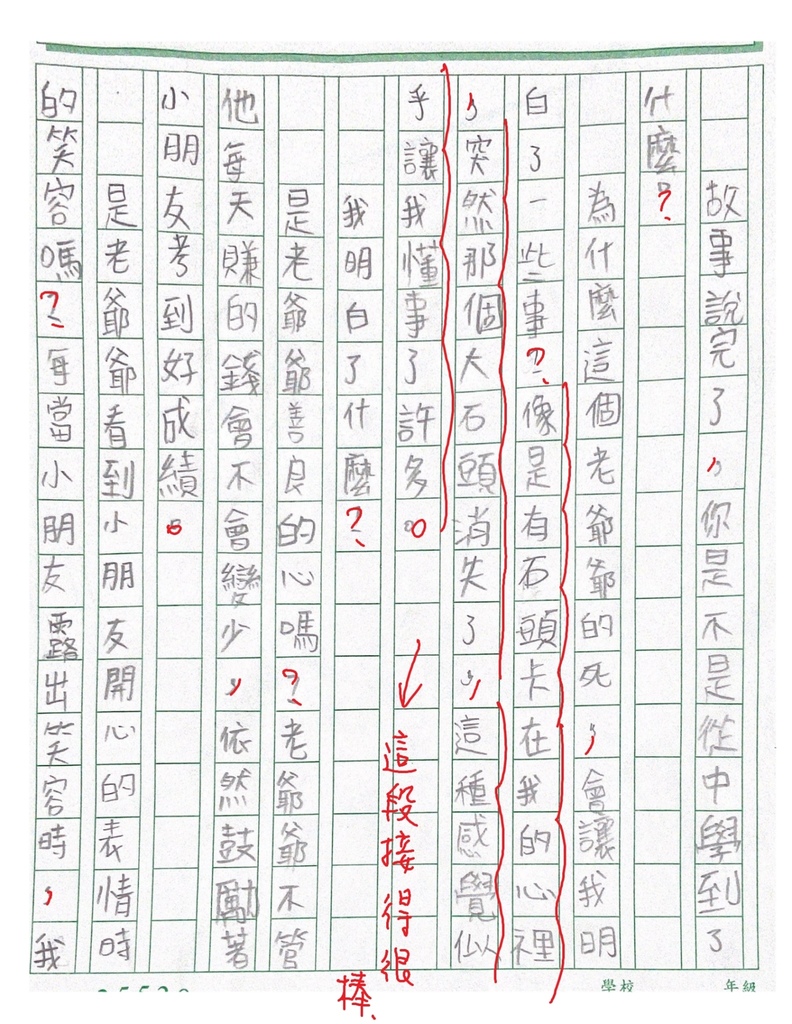 故事說完了，你是不是從中學到了
什麼？
為什麼這個老爺爺的死，會讓我明
白了一些事？像是有石頭卡在我的心裡
，突然那個大石頭消失了，這種感覺似
乎讓我懂事了許多。
這段接得很棒、
我明白了什麼？
是老爺爺善良的心嗎？老爺爺不管
他每天賺的錢會不會變少，依然鼓勵著
小朋友考到好成績。
是老爺爺看到小朋友開心的表情時
的笑容嗎？每當小朋友露出笑容時，我
學校
年級